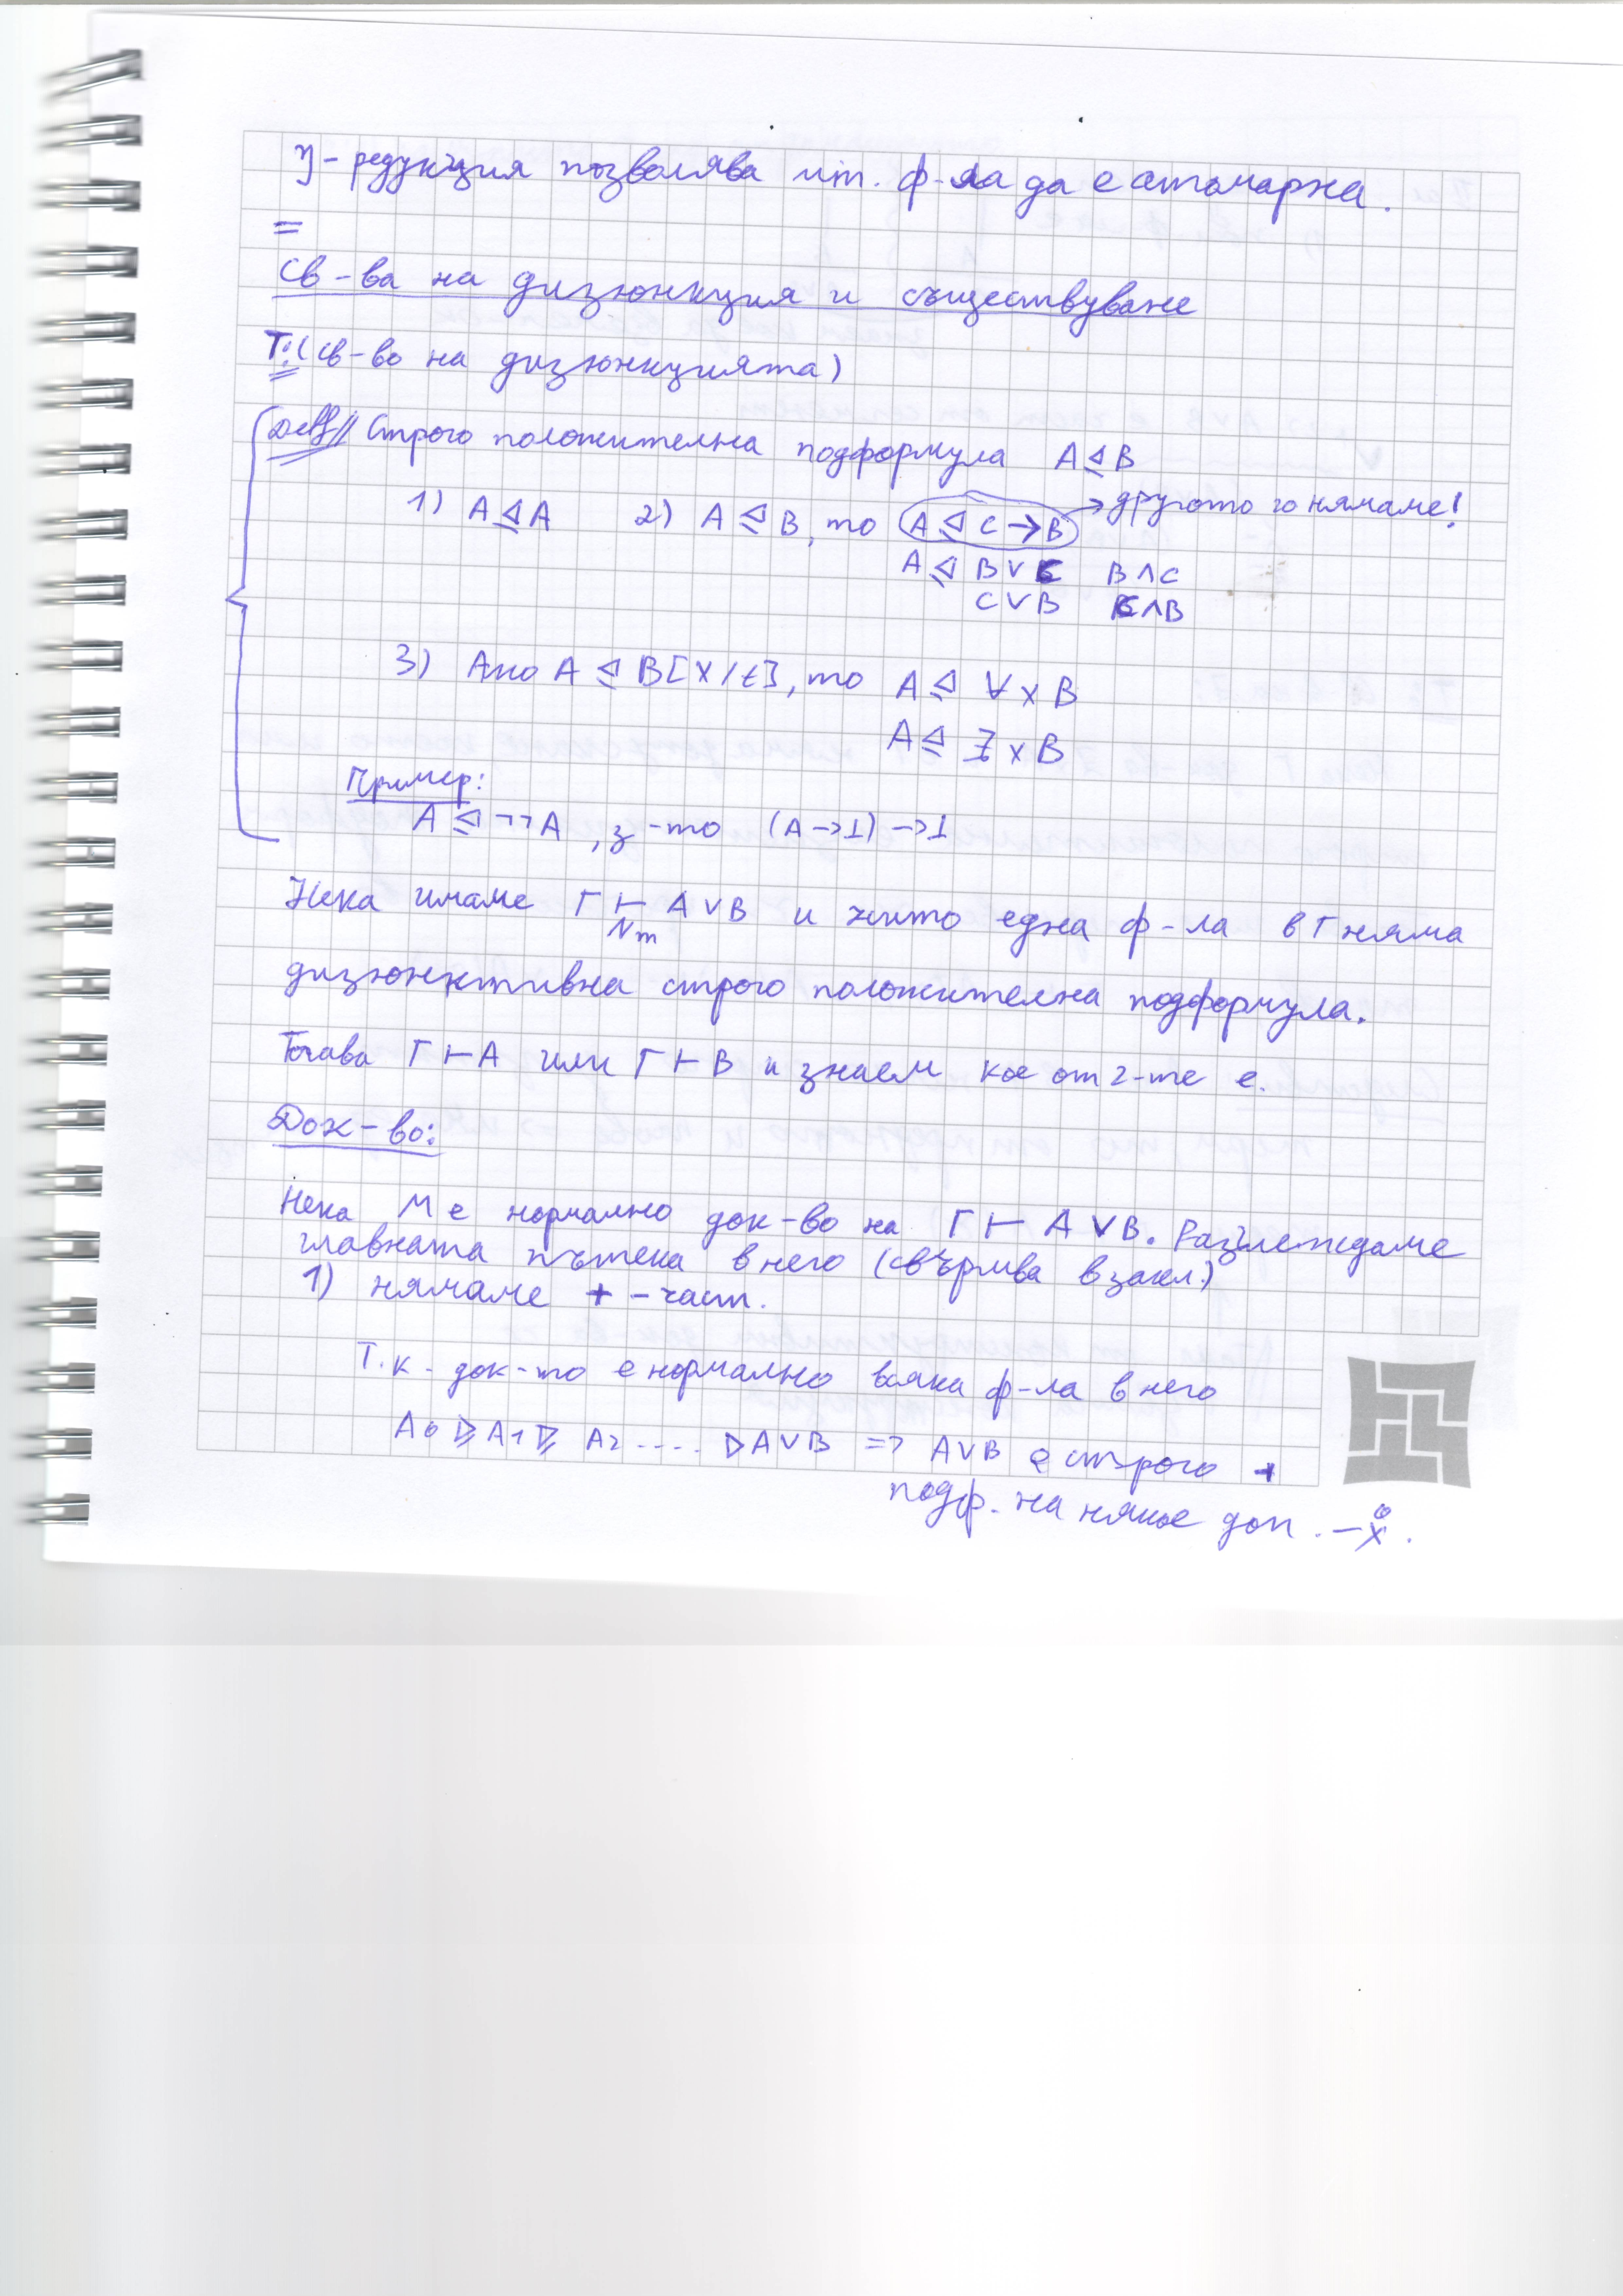 η - редукция позволява мин. ф-ла да е атомарна.
=
Св-ва на дизюнкция и съществуване
T:(св-во на дизюнкцията)
Деф// Строго положителна подформула A ⊴ B
1) A ⊴ A 2) A ⊴ B, то A ⊴ C → B → другото го нямаме!
A ⊴ B ∨ C B ∧ C
C ∨ B C ∧ B
3) Ако A ⊴ B[x/t], то A ⊴ ∀x B
A ⊴ ∃x B
Пример:
A ⊴ ¬¬A, з-то (A → ⊥) → ⊥
Нека имаме Γ ⊢ A ∨ B и нито една ф-ла в Γ няма
Nm
дизюнктивна строго положителна подформула.
Тогава Γ ⊢ A или Γ ⊢ B и знаем кое от 2-те е.
Док-во:
Нека M е нормално док-во на Γ ⊢ A ∨ B. Разглеждаме
главната пътека в него (свършва в закл.)
1) нямаме + - част.
Т.к. док-то е нормално всяка ф-ла в него
A0 ⊵ A1 ⊵ A2 .... ⊳ A ∨ B => A ∨ B е строго +
подф. на някое доп. –